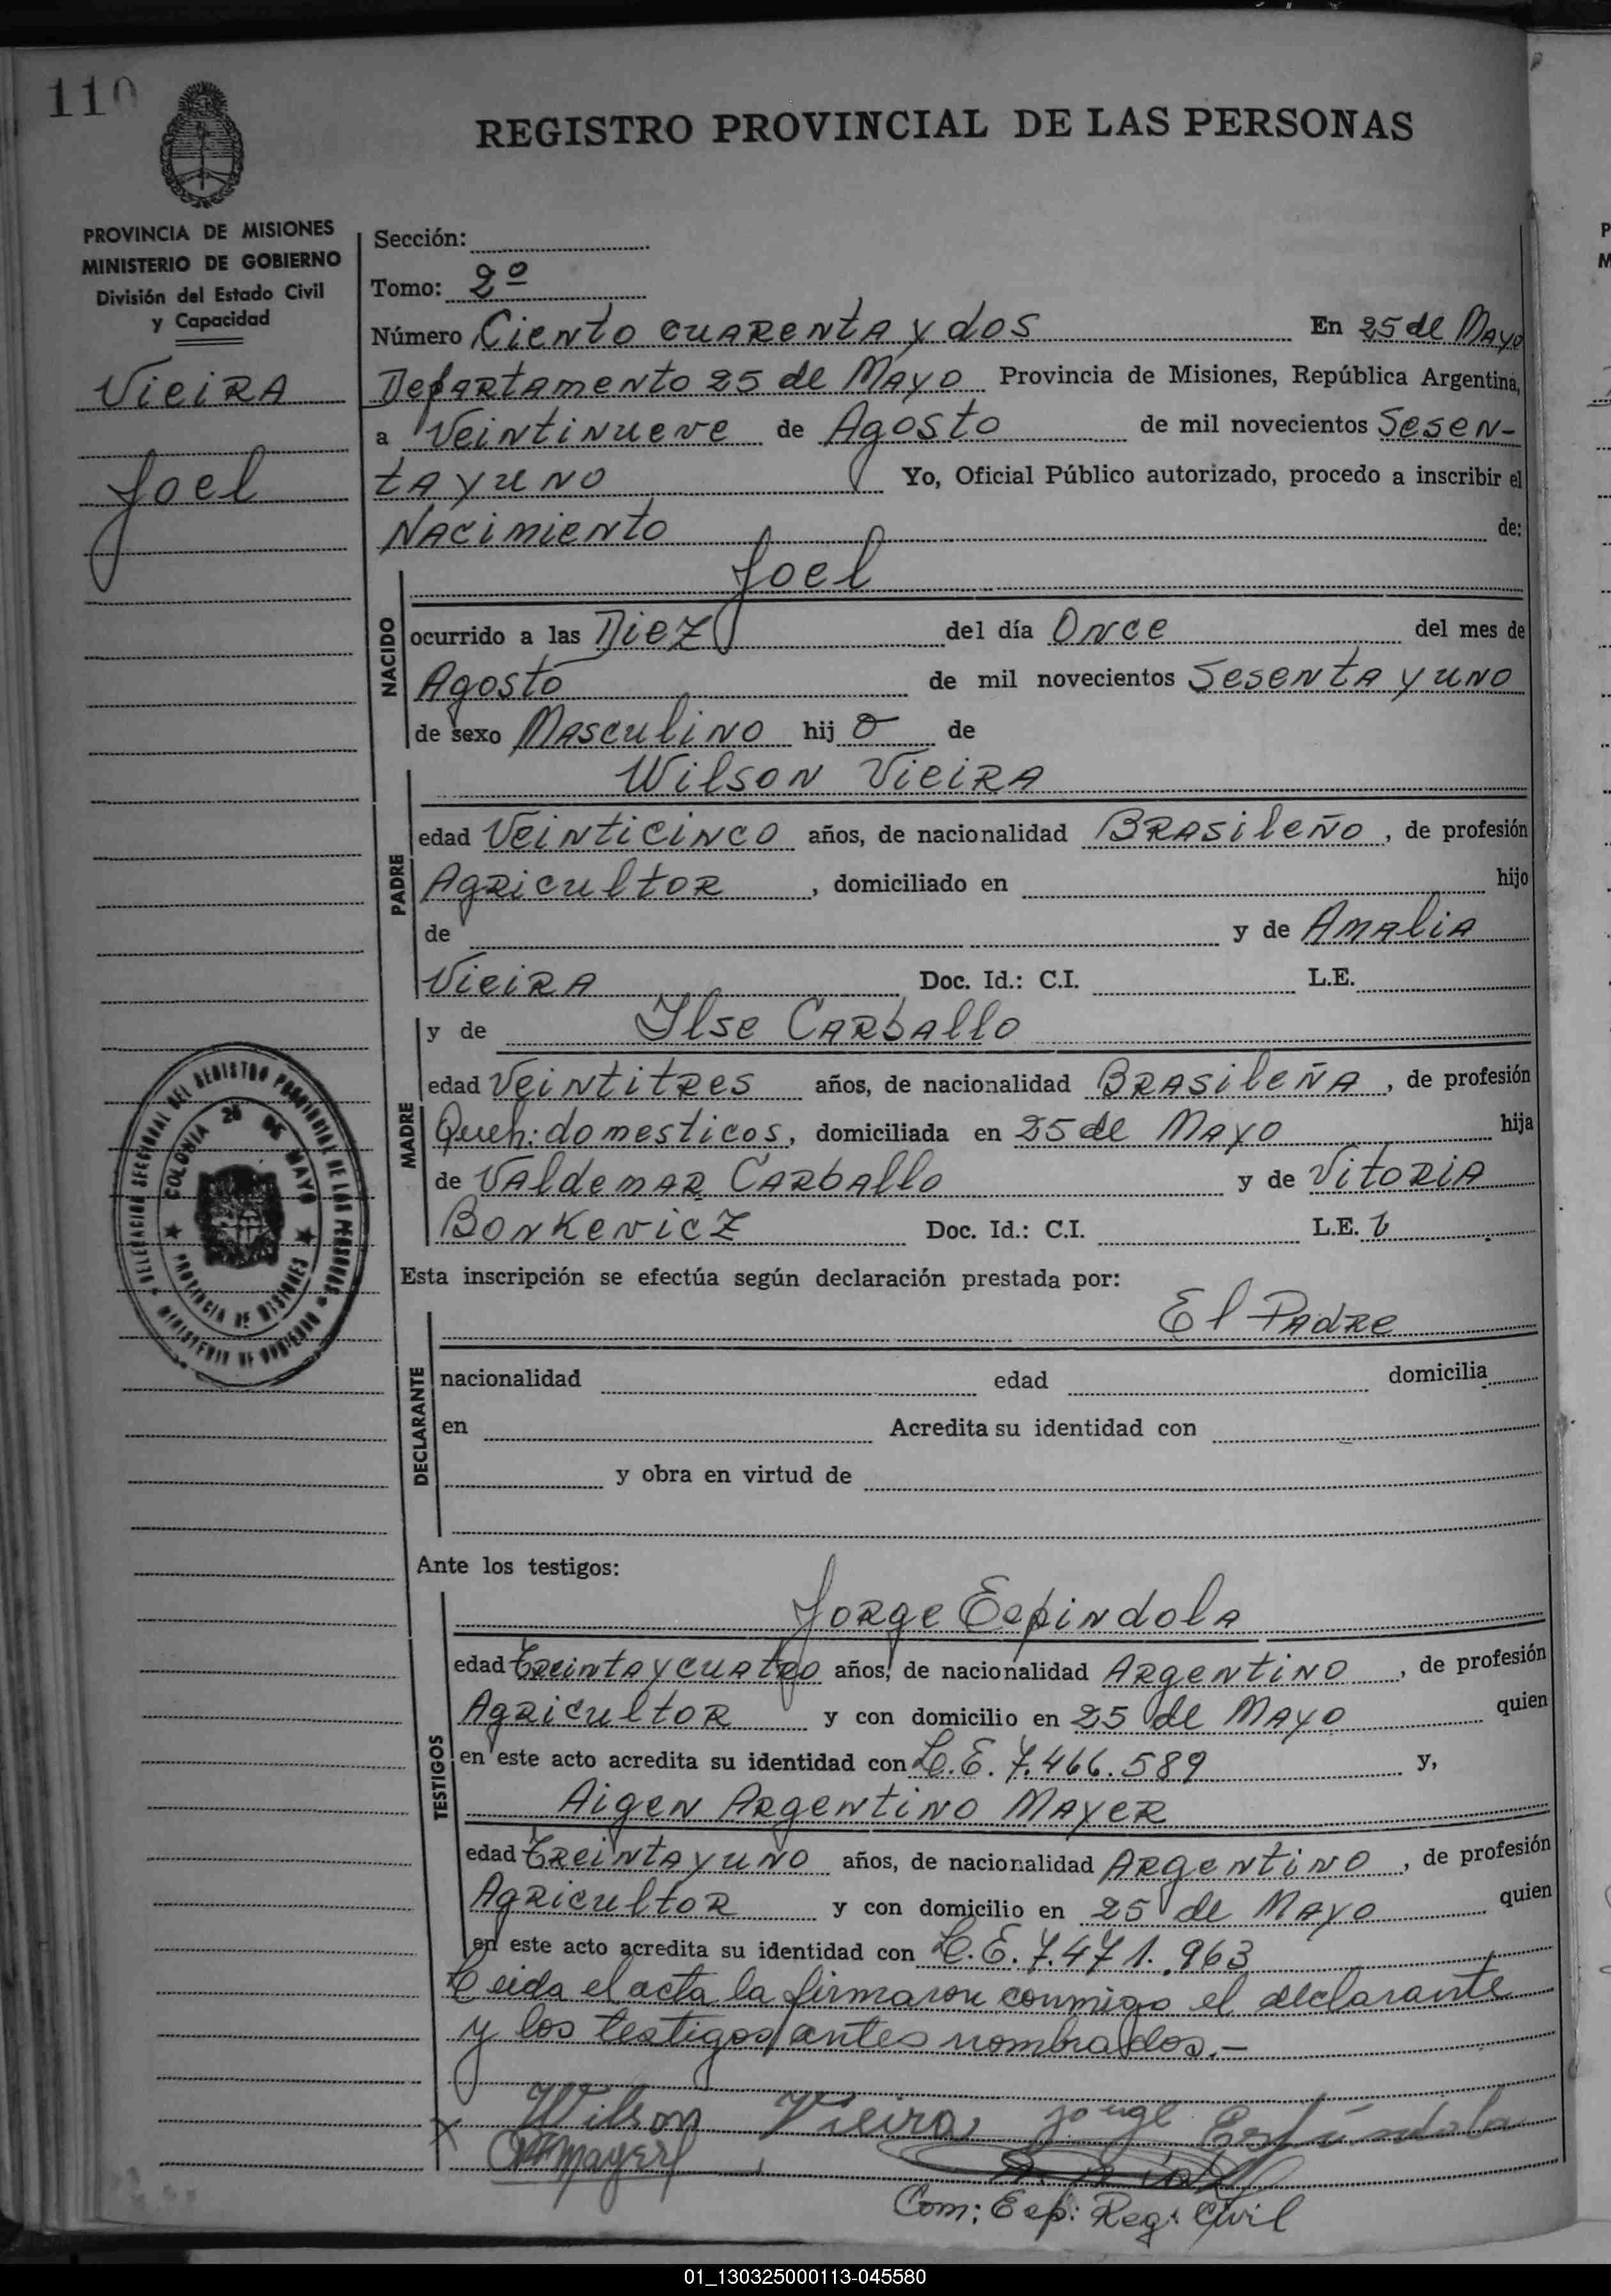 110
REGISTRO PROVINCIAL DE LAS PERSONAS
PROVINCIA DE MISIONES
MINISTERIO DE GOBIERNO
División del Estado Civil
y Capacidad
Vieira
Joel
Sección:
Tomo: 2º
Número Ciento cuarenta y dos En 25 de Mayo
Departamento 25 de Mayo Provincia de Misiones, República Argentina,
a Veintinueve de Agosto de mil novecientos Sesen-
ta y uno Yo, Oficial Público autorizado, procedo a inscribir el
Nacimiento de:
Joel
NACIDO
ocurrido a las Diez del día Once del mes de
Agosto de mil novecientos Sesenta y uno
de sexo Masculino hijo de
Wilson Vieira
PADRE
edad Veinticinco años, de nacionalidad Brasileño, de profesión
Agricultor, domiciliado en hijo
de y de Amalia
Vieira Doc. Id.: C.I. L.E.
y de Ilse Carballo
MADRE
edad Veintitres años, de nacionalidad Brasileña, de profesión
Queh: domesticos, domiciliada en 25 de Mayo hija
de Valdemar Carballo y de Vitoria
Bonkevicz Doc. Id.: C.I. L.E.
DELEGACION SECCIONAL DEL REGISTRO PROVINCIAL DE LAS PERSONAS
MINISTERIO DE GOBIERNO
COLONIA 25 DE MAYO
PROVINCIA DE MISIONES
Esta inscripción se efectúa según declaración prestada por:
El Padre
DECLARANTE
nacionalidad edad domicilia
en Acredita su identidad con
y obra en virtud de
Ante los testigos:
Jorge Espindola
TESTIGOS
edad treinta y cuatro años, de nacionalidad Argentino, de profesión
Agricultor y con domicilio en 25 de Mayo quien
en este acto acredita su identidad con L.E. 7.466.589 y,
Aigen Argentino Mayer
edad treinta y uno años, de nacionalidad Argentino, de profesión
Agricultor y con domicilio en 25 de Mayo quien
en este acto acredita su identidad con L.E. 7.471.963
Leida el acta la firmaron conmigo el declarante
y los testigos antes nombrados.-
x Wilson Vieira Jorge Espíndola
Mayer
Com: Esp: Reg: Civil
01_130325000113-045580